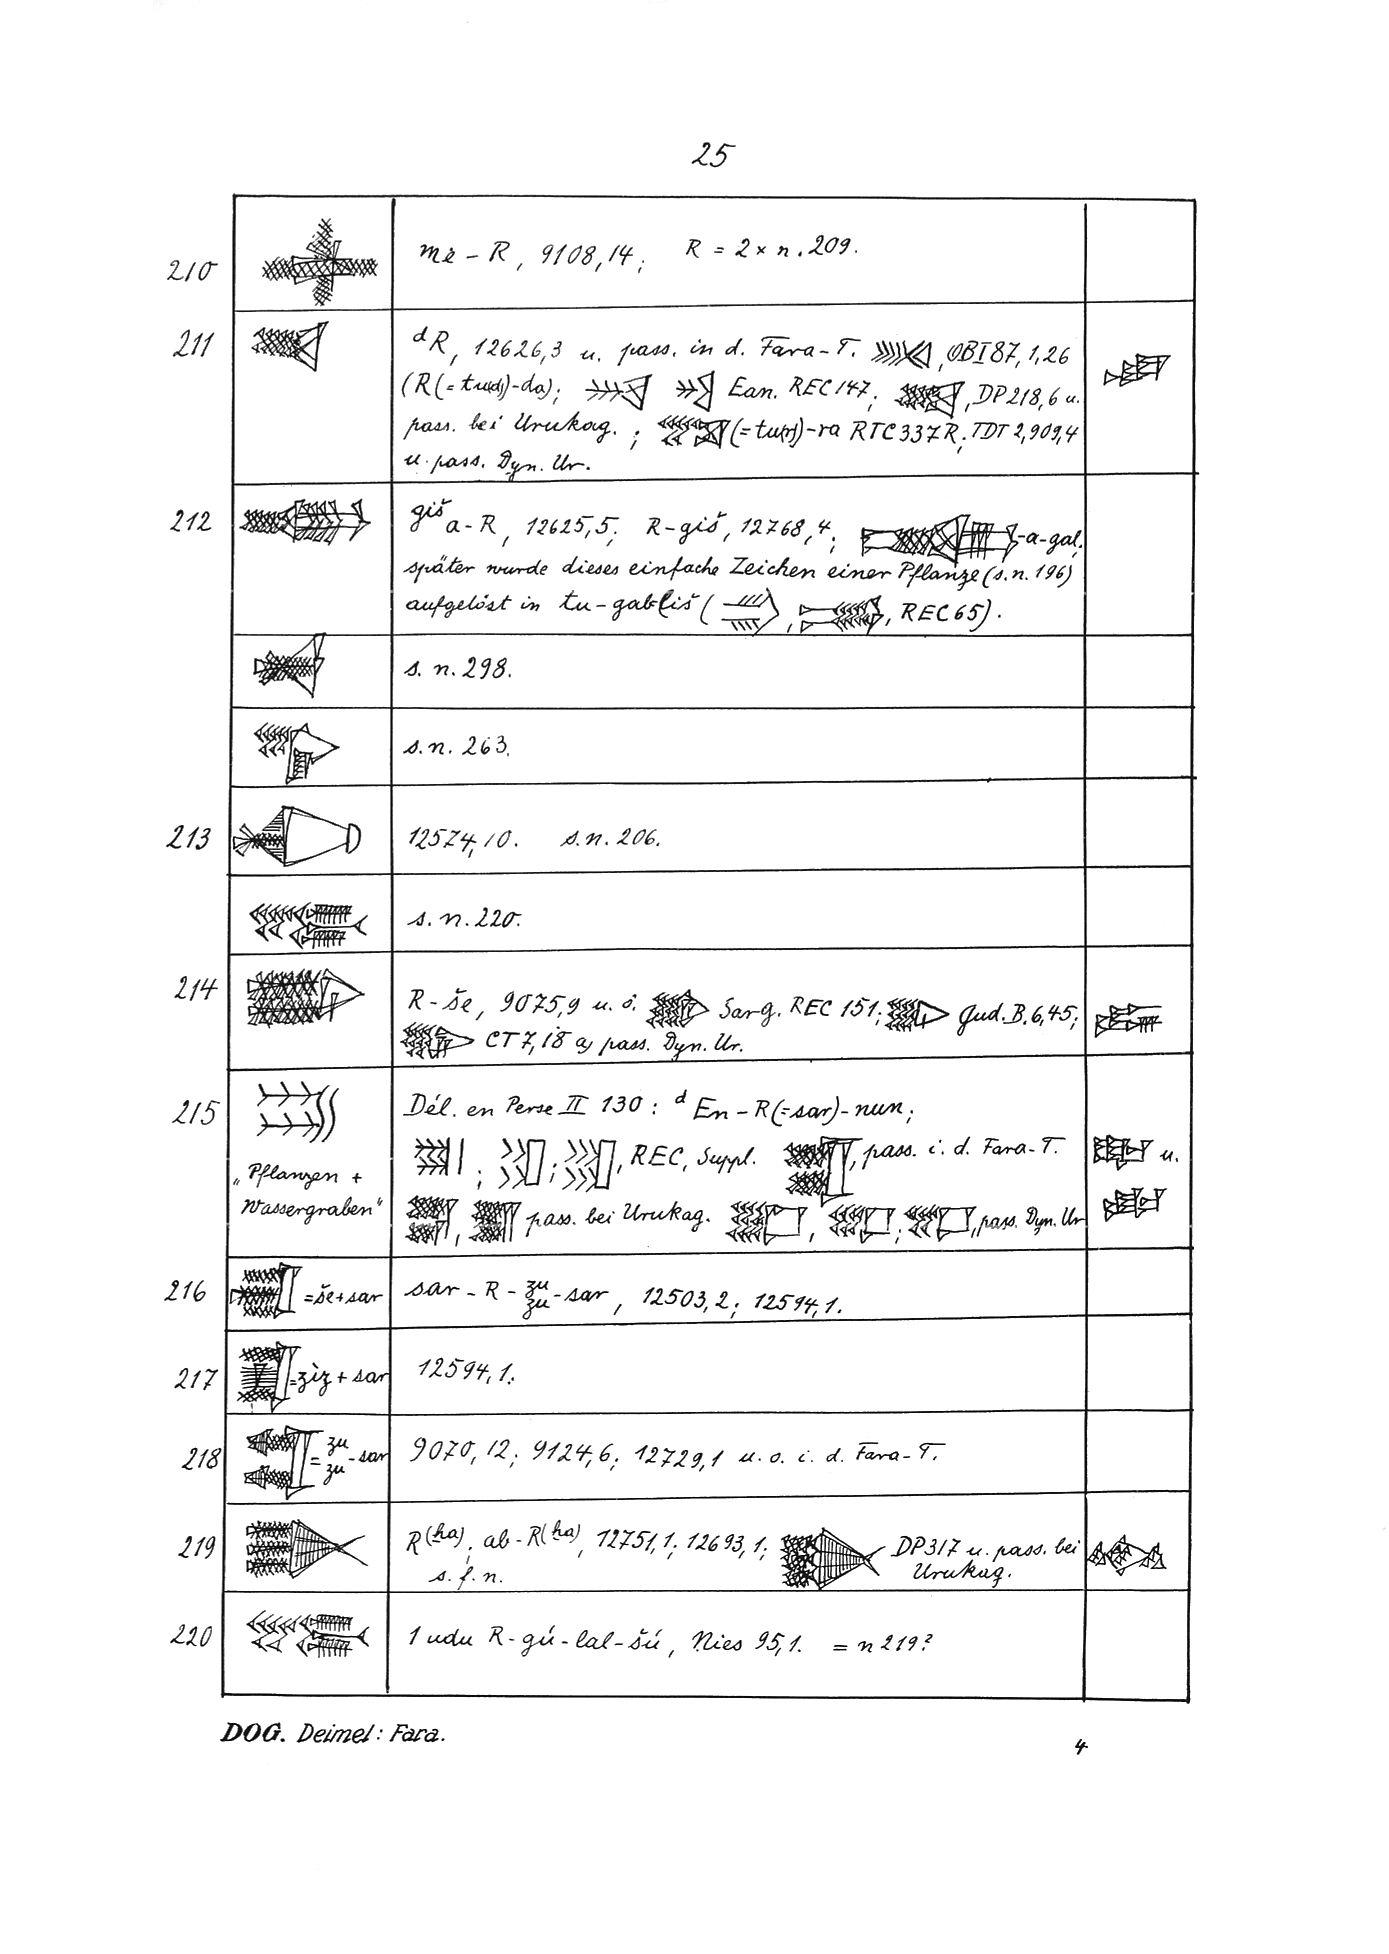 25
210 me – R, 9108,14; R = 2 × n. 209.
211 ᵈR, 12626,3 u. pass. in d. Fara-T. , OBI 87, 1, 26
Ean. REC 147; , DP 218, 6 u.
pass. bei Urukag.; -ra RTC 337 R; TDT 2, 909, 4
u. pass. Dyn. Ur.
212 ᵍⁱˢ̌a-R, 12625,5; R-giš, 12768,4; -a-gal;
später wurde dieses einfache Zeichen einer Pflanze (s. n. 196)
aufgelöst in ( , , REC 65).
s. n. 298.
s. n. 263.
213 12574,10. s. n. 206.
s. n. 220.
214 R-še, 9075,9 u. ö. Sarg. REC 151; Gud. B. 6,45;
CT 7, 18 a; pass. Dyn. Ur.
215 Dél. en Perse II 130: ᵈEn-R(=sar)-nun;
; ; , REC, Suppl. , pass. i. d. Fara-T. u.
„Pflanzen +
Wassergraben“
, pass. bei Urukag. , ; , pass. Dyn. Ur
216 = še+sar sar-R-zu/zu-sar, 12503,2; 12594,1.
217 = zìz + sar 12594,1.
218 = zu/zu-sar 9070,12; 9124,6; 12729,1 u. o. i. d. Fara-T.
219 R(ḫa); ab-R(ḫa), 12751,1; 12693,1; DP 317 u. pass. bei
s. f. n. Urukag.
220 1 udu R-gú-lal-šú, Nies 95,1. = n 219?
DOG. Deimel: Fara.
4